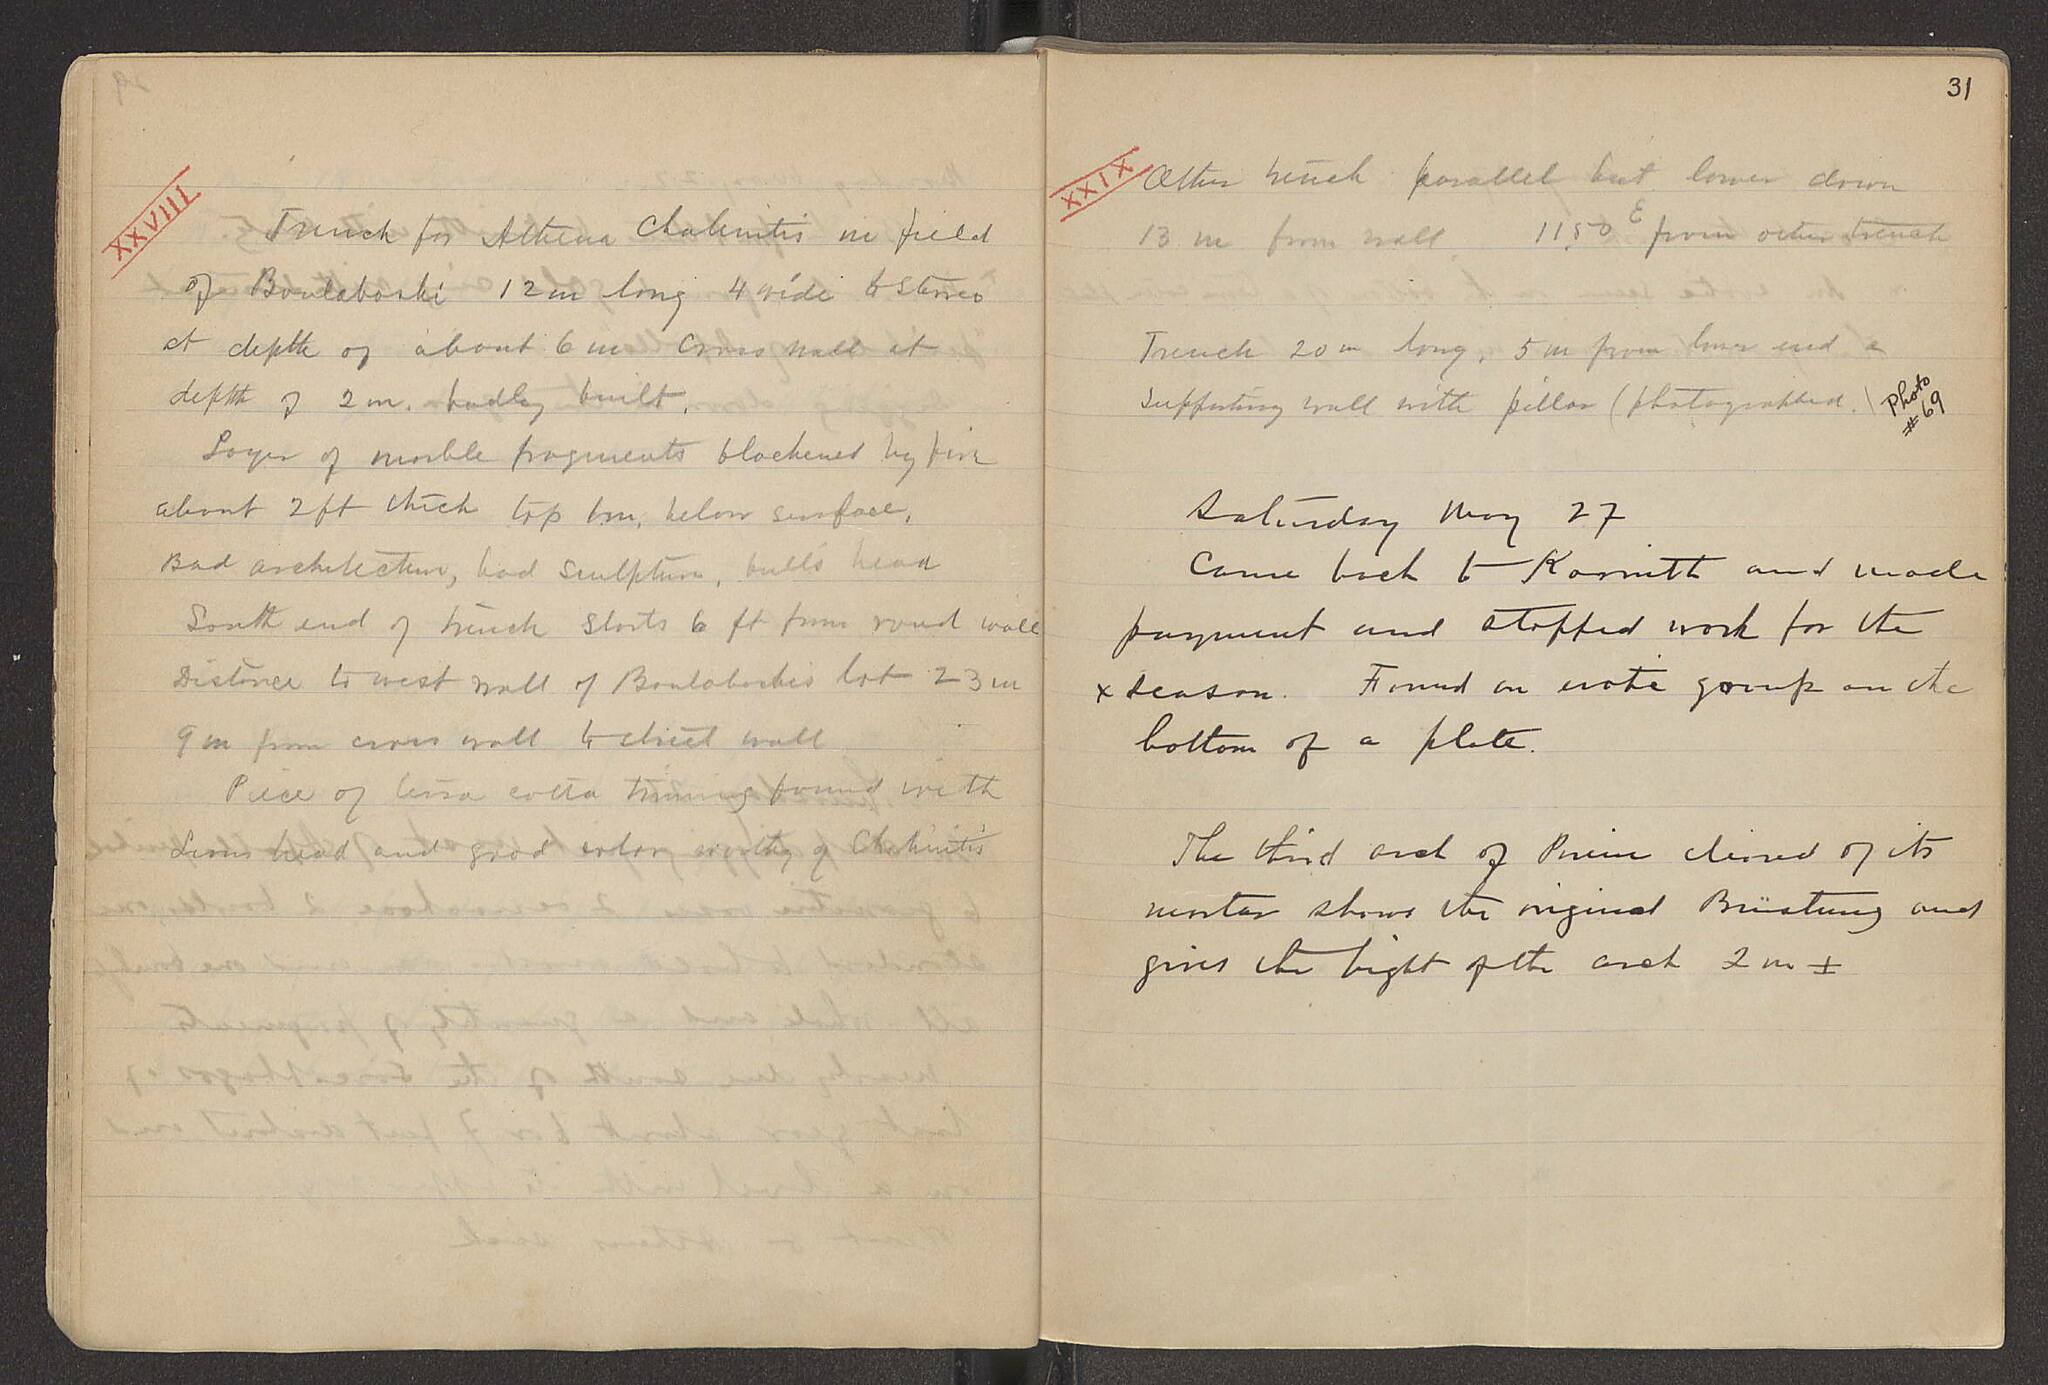 XXVIII
Trench for Athena Chalinitis in field
of Boulaboski 12 m long 4 wide to stereo
at depth of about 6 m Cross wall at
depth of 2 m. badly built.
Layer of marble fragments blackened by fire
about 2 ft thick top 1 m. below surface.
Bad architecture, bad sculpture, bull's head
South end of trench starts 6 ft from road wall
Distance to west wall of Boulaboskis lot 23 m
9 m from cross wall to street wall
Piece of terra cotta trimming found with
Lions head and good color worthy of Chalinitis
31
XXIX
Other trench parallel but lower down
13 m from wall 11.50 E from other trench
Trench 20 m long, 5 m from lower end a
supporting wall with pillar (photographed.)
Photo
# 69
Saturday May 27
Came back to Korinth and made
payment and stopped work for the
x season. Found an group on the
bottom of a plate.
The third arch of Pirene cleared of its
mortar shows the original Brüstung and
gives the hight of the arch 2 m ±